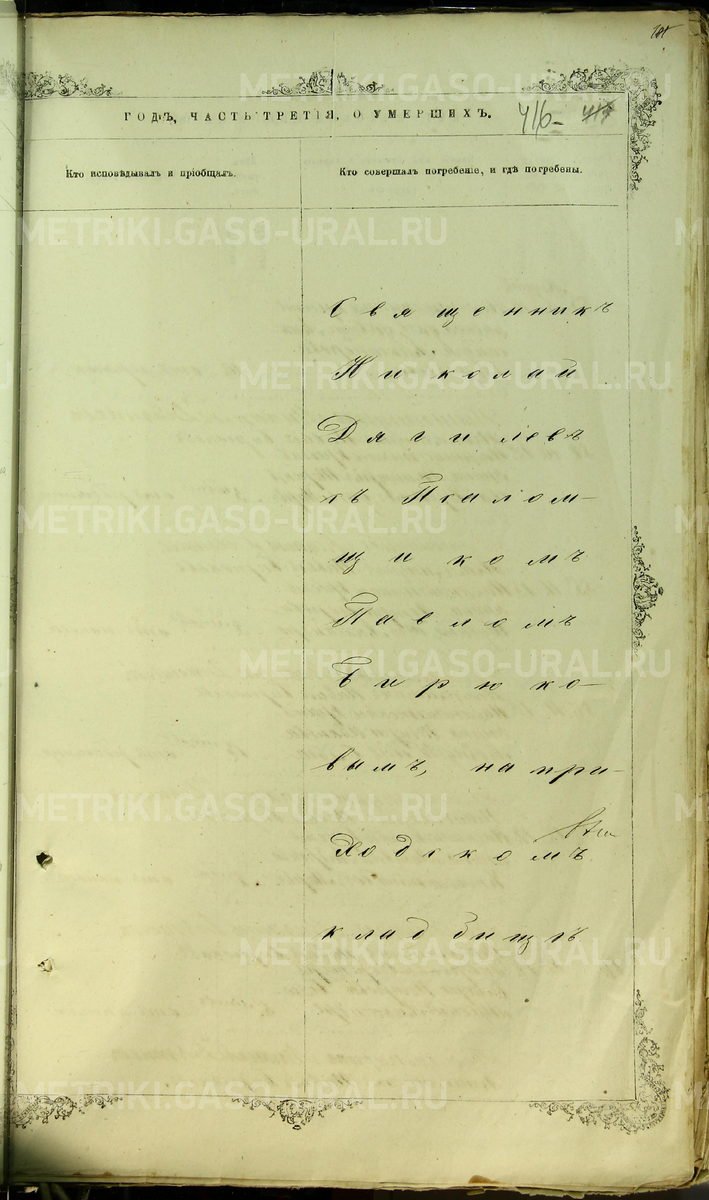 ГОДЪ, ЧАСТЬ ТРЕТІЯ, О УМЕРШИХЪ.
416
Кто исповѣдывалъ и пріобщалъ.
Кто совершалъ погребеніе, и гдѣ погребены.
Священникъ
Николай
Дягилевъ
съ Псалом-
щикомъ
Павломъ
Бирюко-
вымъ, на при-
ходскомъ
кладбищѣ
METRIKI.GASO-URAL.RU